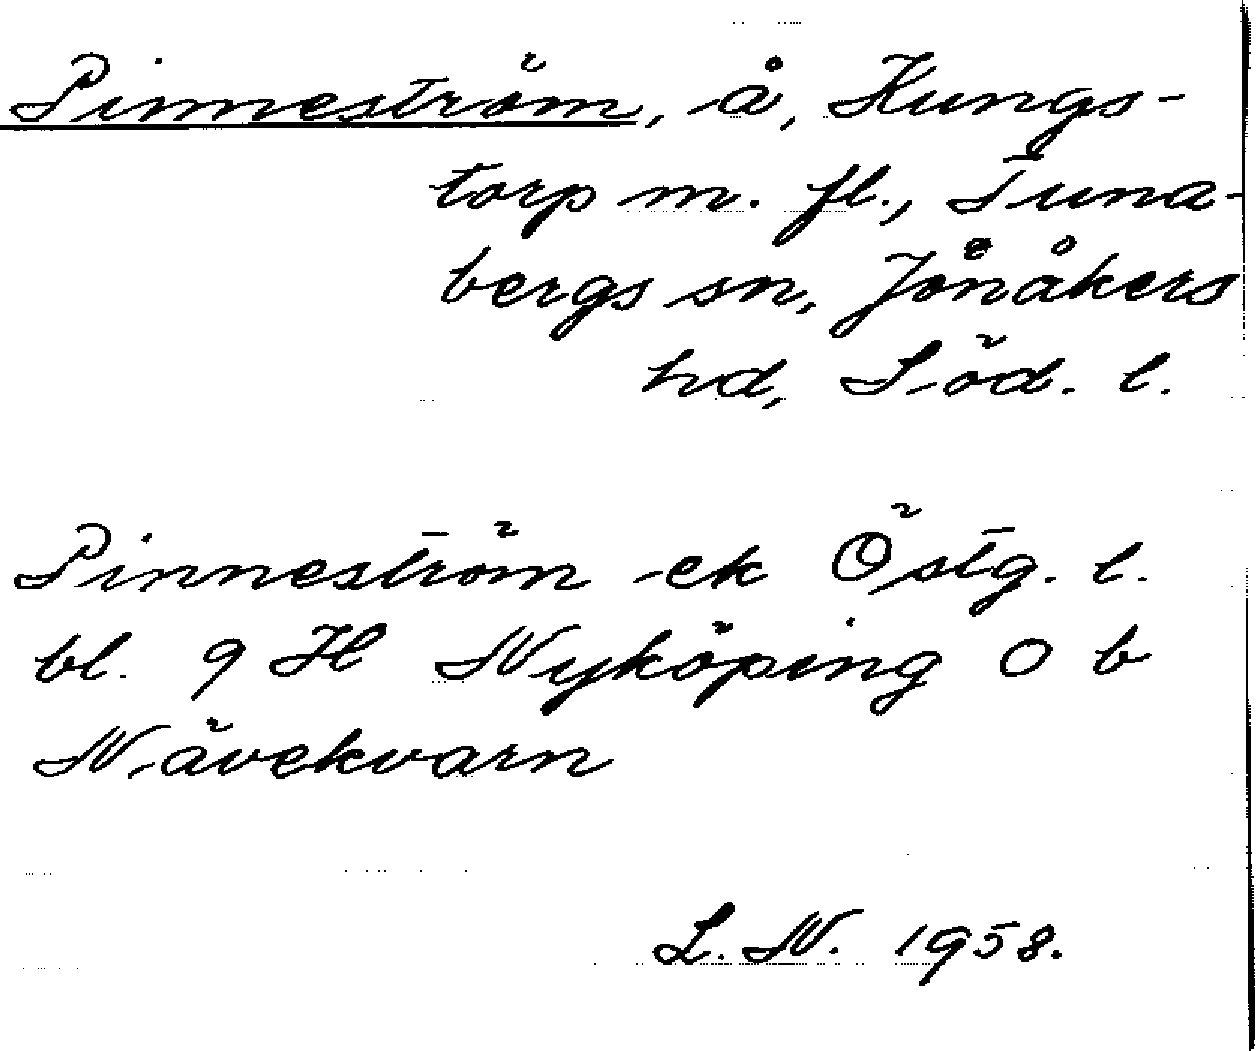 Pinneström, å, Kungs-
torp m. fl., Tuna-
bergs sn, Jönåkers
hd, Söd. l.
Pinneström -ek Östg. l.
bl. 9 H Nyköping O b
Nävekvarn
L. N. 1958.